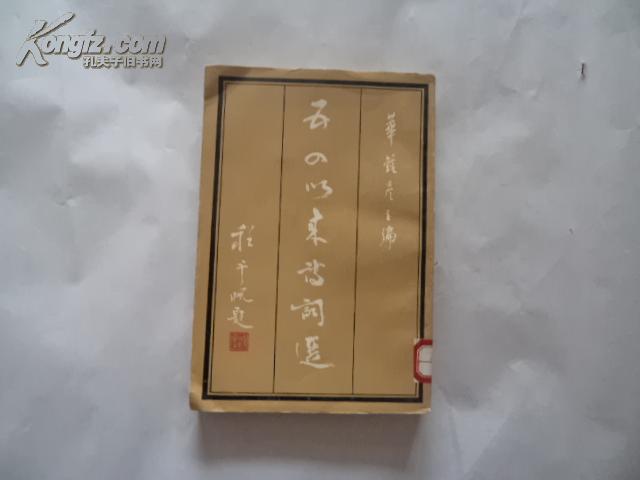 Kongfz.com
孔夫子旧书网
華鍾彦主編
五四以來詩詞選
程千帆題